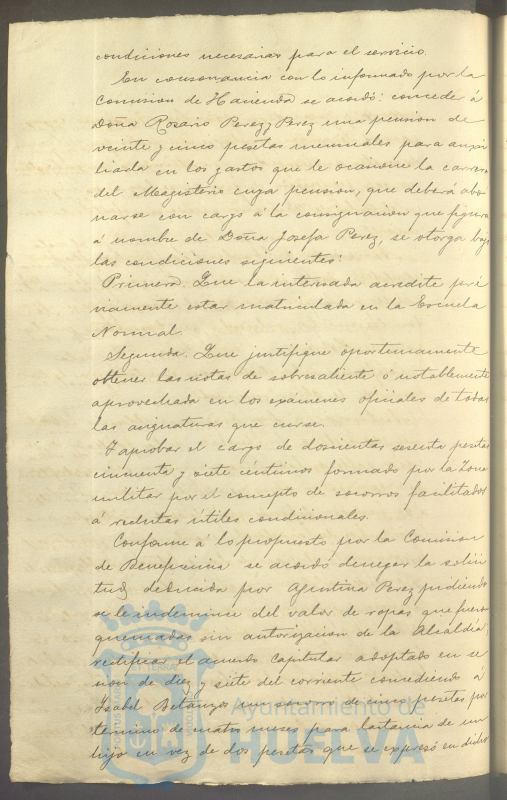 condiciones necesarias para el servicio.
En consonancia con lo informado por la
Comision de Hacienda se acordó: conceder á
Doña Rosario Perez y Perez una pension de
veinte y cinco pesetas mensuales para auxi
liarla en los gastos que le ocasione la carrera
del Magisterio cuya pension, que deberá abo
narse con cargo á la consignacion que figura
á nombre de Doña Josefa Perez, se otorga bajo
las condiciones siguientes:
Primera. Que la interesada acredite pré
viamente estar matriculada en la Escuela
Normal.
Segunda. Que justifique oportunamente
obtener las notas de sobresaliente ó notablemente
aprovechada en los exámenes oficiales de todas
las asignaturas que curse.
Y aprobar el cargo de doscientas sesenta pesetas
cincuenta y siete céntimos formado por la Zona
militar por el concepto de socorros facilitados
á reclutas útiles condicionales.
Conforme á lo propuesto por la Comision
de Beneficencia se acordó denegar la solici
tud deducida por Agustina Perez pidiendo
se le indemnice del valor de ropas que fueron
quemadas sin autorizacion de la Alcaldia,
rectificar el acuerdo Capitular adoptado en se
sion de diez y siete del corriente concediendo á
Isabel Betanzos un socorro de cinco pesetas por
término de cuatro meses para lactancia de un
hijo en vez de dos pesetas que se expresó en dicho
Ayuntamiento de
HUELVA